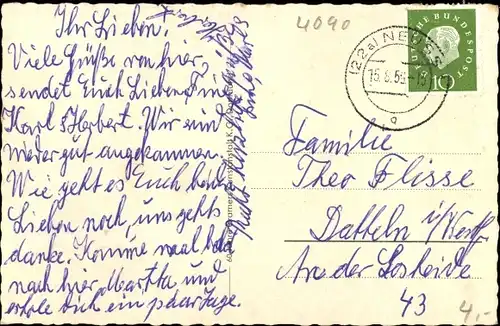 Ihr Lieben.
Viele Grüße von hier,
sendet Euch Lieben, Fine
Karl & Herbert. Wir sind
wieder gut angekommen.
Wie geht es Euch beiden
Lieben noch, uns gehts
danke. Komme mal bald
nach hier Martha und
erhole Dich ein paar Tage.
4090
(22a) NEUSS
15.8.59
DEUTSCHE BUNDESPOST
10
Familie
Theo Flisse
Datteln i/Westf.
An der Losheide
43
4,-